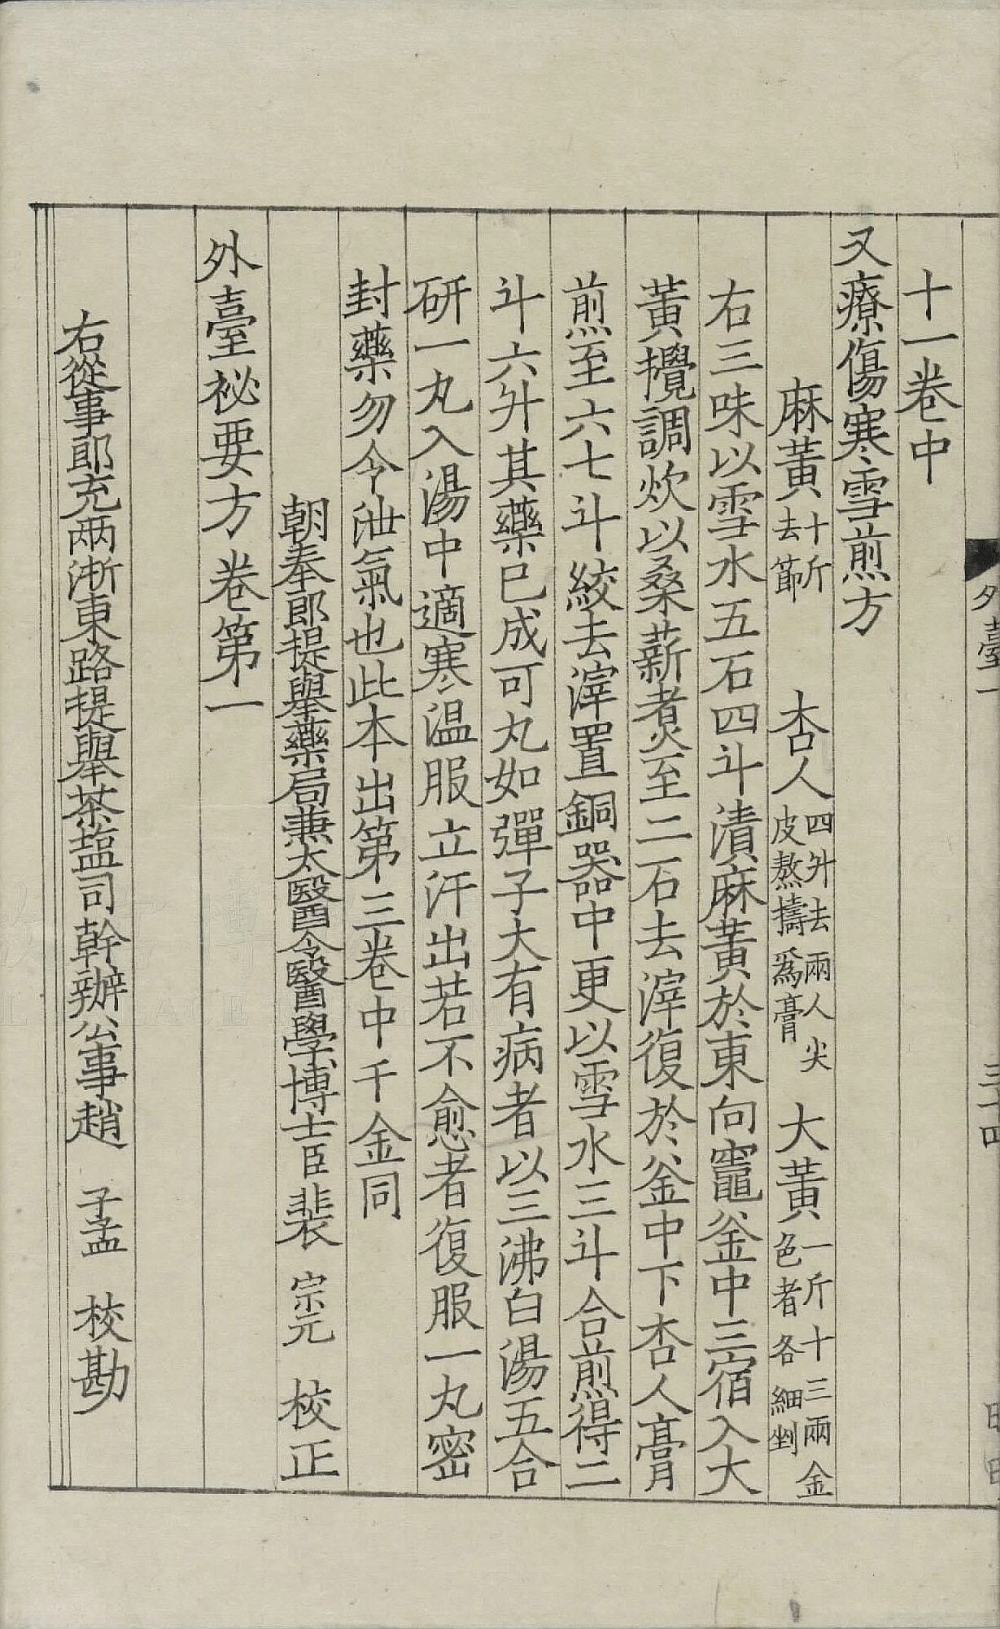 外臺一
三十四
十一卷中
又療傷寒雪煎方
麻黃十斤去節　杏人四升去兩人尖皮熬擣爲膏　大黃一斤十三兩金色者各細剉
右三味以雪水五石四斗漬麻黃於東向竈釜中三宿入大
黃攪調炊以桑薪煑至二石去滓復於釜中下杏人膏
煎至六七斗絞去滓置銅器中更以雪水三斗合煎得二
斗六升其藥已成可丸如彈子大有病者以三沸白湯五合
研一丸入湯中適寒温服立汗出若不愈者復服一丸密
封藥勿令泄氣也此本出第三卷中千金同
朝奉郎提舉藥局兼太醫令醫學博士臣裴　宗元　校正
外臺祕要方卷第一
右從事郎充兩浙東路提舉茶塩司幹辦公事趙　子孟　校勘